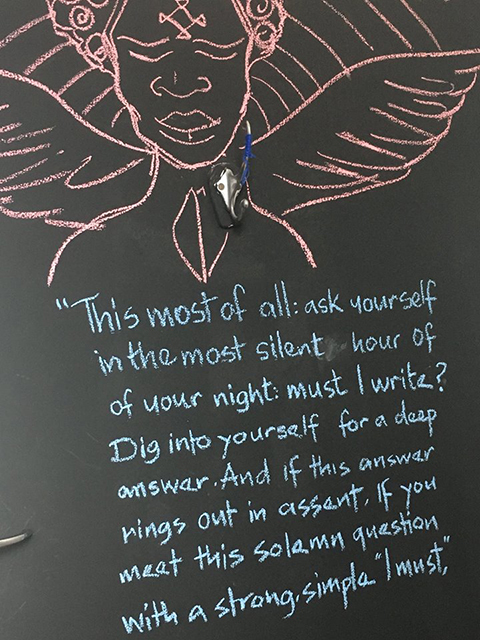 "This most of all: ask yourself
in the most silent hour of
of your night: must I write?
Dig into yourself for a deep
answer. And if this answer
rings out in assent, If you
meet this solemn question
with a strong, simple "I must,"